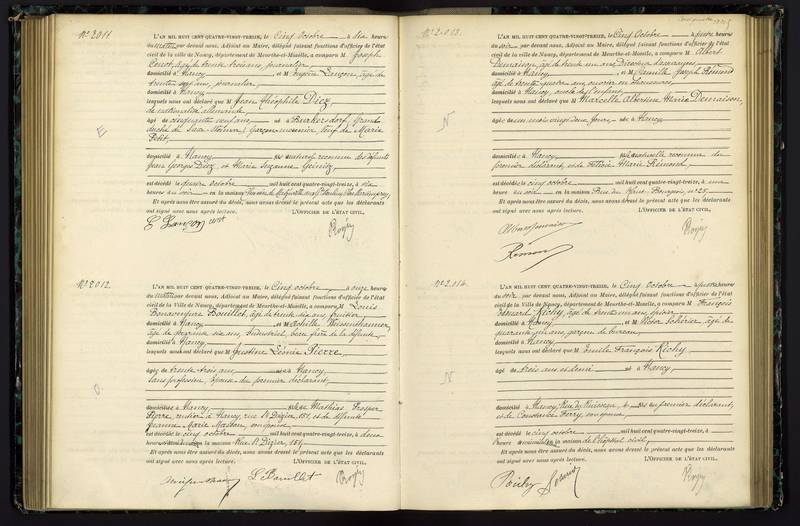 N° 2011.
L'AN MIL HUIT CENT QUATRE-VINGT-TREIZE, le Cinq octobre à dix heures
du matin par devant nous, Adjoint au Maire, délégué faisant fonctions d'officier de l'état
civil de la Ville de Nancy, département de Meurthe-et-Moselle, a comparu M Joseph
âgé de trente trois ans, journalier,
domicilié à Nancy et M Eugène âgé de
trente sept ans, journalier,
domicilié à Nancy
lesquels nous ont déclaré que M Jean Théophile Diez,
de nationalité allemande,
âgé de cinquante neuf ans né à Burkersdorf, Grand
duché de Saxe garçon veuf de Marie
Petit,
domicilié à Nancy fils
Jean Georges Diez et Marie Suzanne
est décédé le octobre mil huit cent quatre-vingt-treize, à dix
heures du soir en la maison
Et après nous être assuré du décès, nous avons dressé le présent acte que les déclarants
ont signé avec nous après lecture. L'OFFICIER DE L'ÉTAT CIVIL,
E
N° 2012.
L'AN MIL HUIT CENT QUATRE-VINGT-TREIZE, le Cinq octobre à onze heures
du matin par devant nous, Adjoint au Maire, délégué faisant fonctions d'officier de l'état
civil de la Ville de Nancy, département de Meurthe-et-Moselle, a comparu M Louis
Bonaventure Bouillet, âgé de trente six ans, fruitier
domicilié à Nancy et M Achille
âgé de ans, industriel, beau frère de la défunte,
domicilié à Nancy
lesquels nous ont déclaré que M Justine Léonie Pierre,
âgée de trente trois ans née à Nancy,
sans profession, épouse du premier déclarant,
domiciliée à Nancy fille de Mathias Prosper
Pierre, rentier à Nancy, rue St Dizier, 151, et de défunte
Jeanne Marie
est décédée le cinq octobre mil huit cent quatre-vingt-treize, à deux
heures en la maison Rue St Dizier, 151
Et après nous être assuré du décès, nous avons dressé le présent acte que les déclarants
ont signé avec nous après lecture. L'OFFICIER DE L'ÉTAT CIVIL,
L. Bouillet
N° 2013.
L'AN MIL HUIT CENT QUATRE-VINGT-TREIZE, le Cinq Octobre à quatre heures
du soir, par devant nous, Adjoint au Maire, délégué faisant fonctions d'officier de l'état
civil de la Ville de Nancy, département de Meurthe-et-Moselle, a comparu M Albert
Demaison, âgé de trente un ans,
domicilié à Nancy, et M Camille Joseph Rémond
âgé de trente quatre ans, ouvrier en chaussures
domicilié à Nancy, oncle de l'enfant,
lesquels nous ont déclaré que M Marcelle Albertine Marie Demaison,
âgée de un mois vingt deux jours née à Nancy,
domiciliée à Nancy fille naturelle reconnue du
premier déclarant, et de Marie Rémond,
est décédée le cinq octobre mil huit cent quatre-vingt-treize, à une
heure du soir en la maison Rue du Haut-Bourgeois, n° 25
Et après nous être assuré du décès, nous avons dressé le présent acte que les déclarants
ont signé avec nous après lecture. L'OFFICIER DE L'ÉTAT CIVIL,
Rémond
N
N° 2014.
L'AN MIL HUIT CENT QUATRE-VINGT-TREIZE, le Cinq Octobre à quatre heures
du soir, par devant nous, Adjoint au Maire, délégué faisant fonctions d'officier de l'état
civil de la Ville de Nancy, département de Meurthe-et-Moselle, a comparu M François
Edouard Richy, âgé de trente un ans,
domicilié à Nancy et M Victor âgé de
quarante six ans, garçon de bureau,
domicilié à Nancy,
lesquels nous ont déclaré que M Emile François Richy,
âgé de trois ans et demi né à Nancy,
domicilié à Nancy, Rue du Ruisseau, 6, fils du premier déclarant,
et de Constance Ferry, son épouse
est décédé le cinq octobre mil huit cent quatre-vingt-treize, à
heure en la maison de l'hôpital civil,
Et après nous être assuré du décès, nous avons dressé le présent acte que les déclarants
ont signé avec nous après lecture. L'OFFICIER DE L'ÉTAT CIVIL,
Richy
N